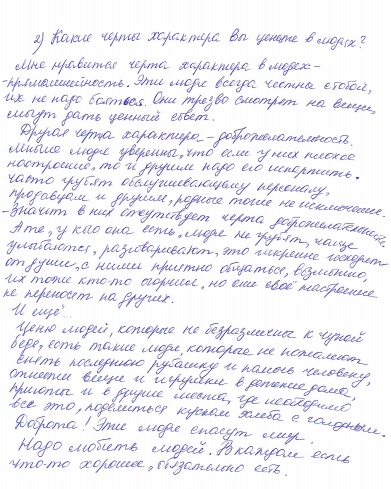 2) Какие черты характера Вы цените в людях?
Мне нравится черта характера в людях -
- прямолинейность. Эти люди всегда честны с тобой,
их не надо бояться. Они трезво смотрят на вещи,
могут дать ценный ответ.
Другая черта характера - доброжелательность.
Многие люди уверенны, что если у них плохое
настроение, то и другим надо его испортить.
Часто грубят обслуживающему персоналу,
продавцам и другим, родные тоже не исключение
- значит в них отсутствует черта доброжелательность.
А те, у кого она есть, люди не грубят, чаще
улыбаются, разговаривают, это искренне исходит
от души, с ними приятно общаться, возможно
их тоже кто-то огорчил, но они своё настроение
не переносят на других.
И ещё...
Ценю людей, которые не безразличны к чужой
беде, есть такие люди, которые не пожалеют
снять последнюю рубашку и помочь человеку,
отнести вещи и игрушки в детские дома,
приюты и в другие места, где необходимо
все это, поделиться куском хлеба с голодным.
Доброта! Эти люди спасут мир.
Надо любить людей. В каждом есть
что-то хорошее, обязательно есть.